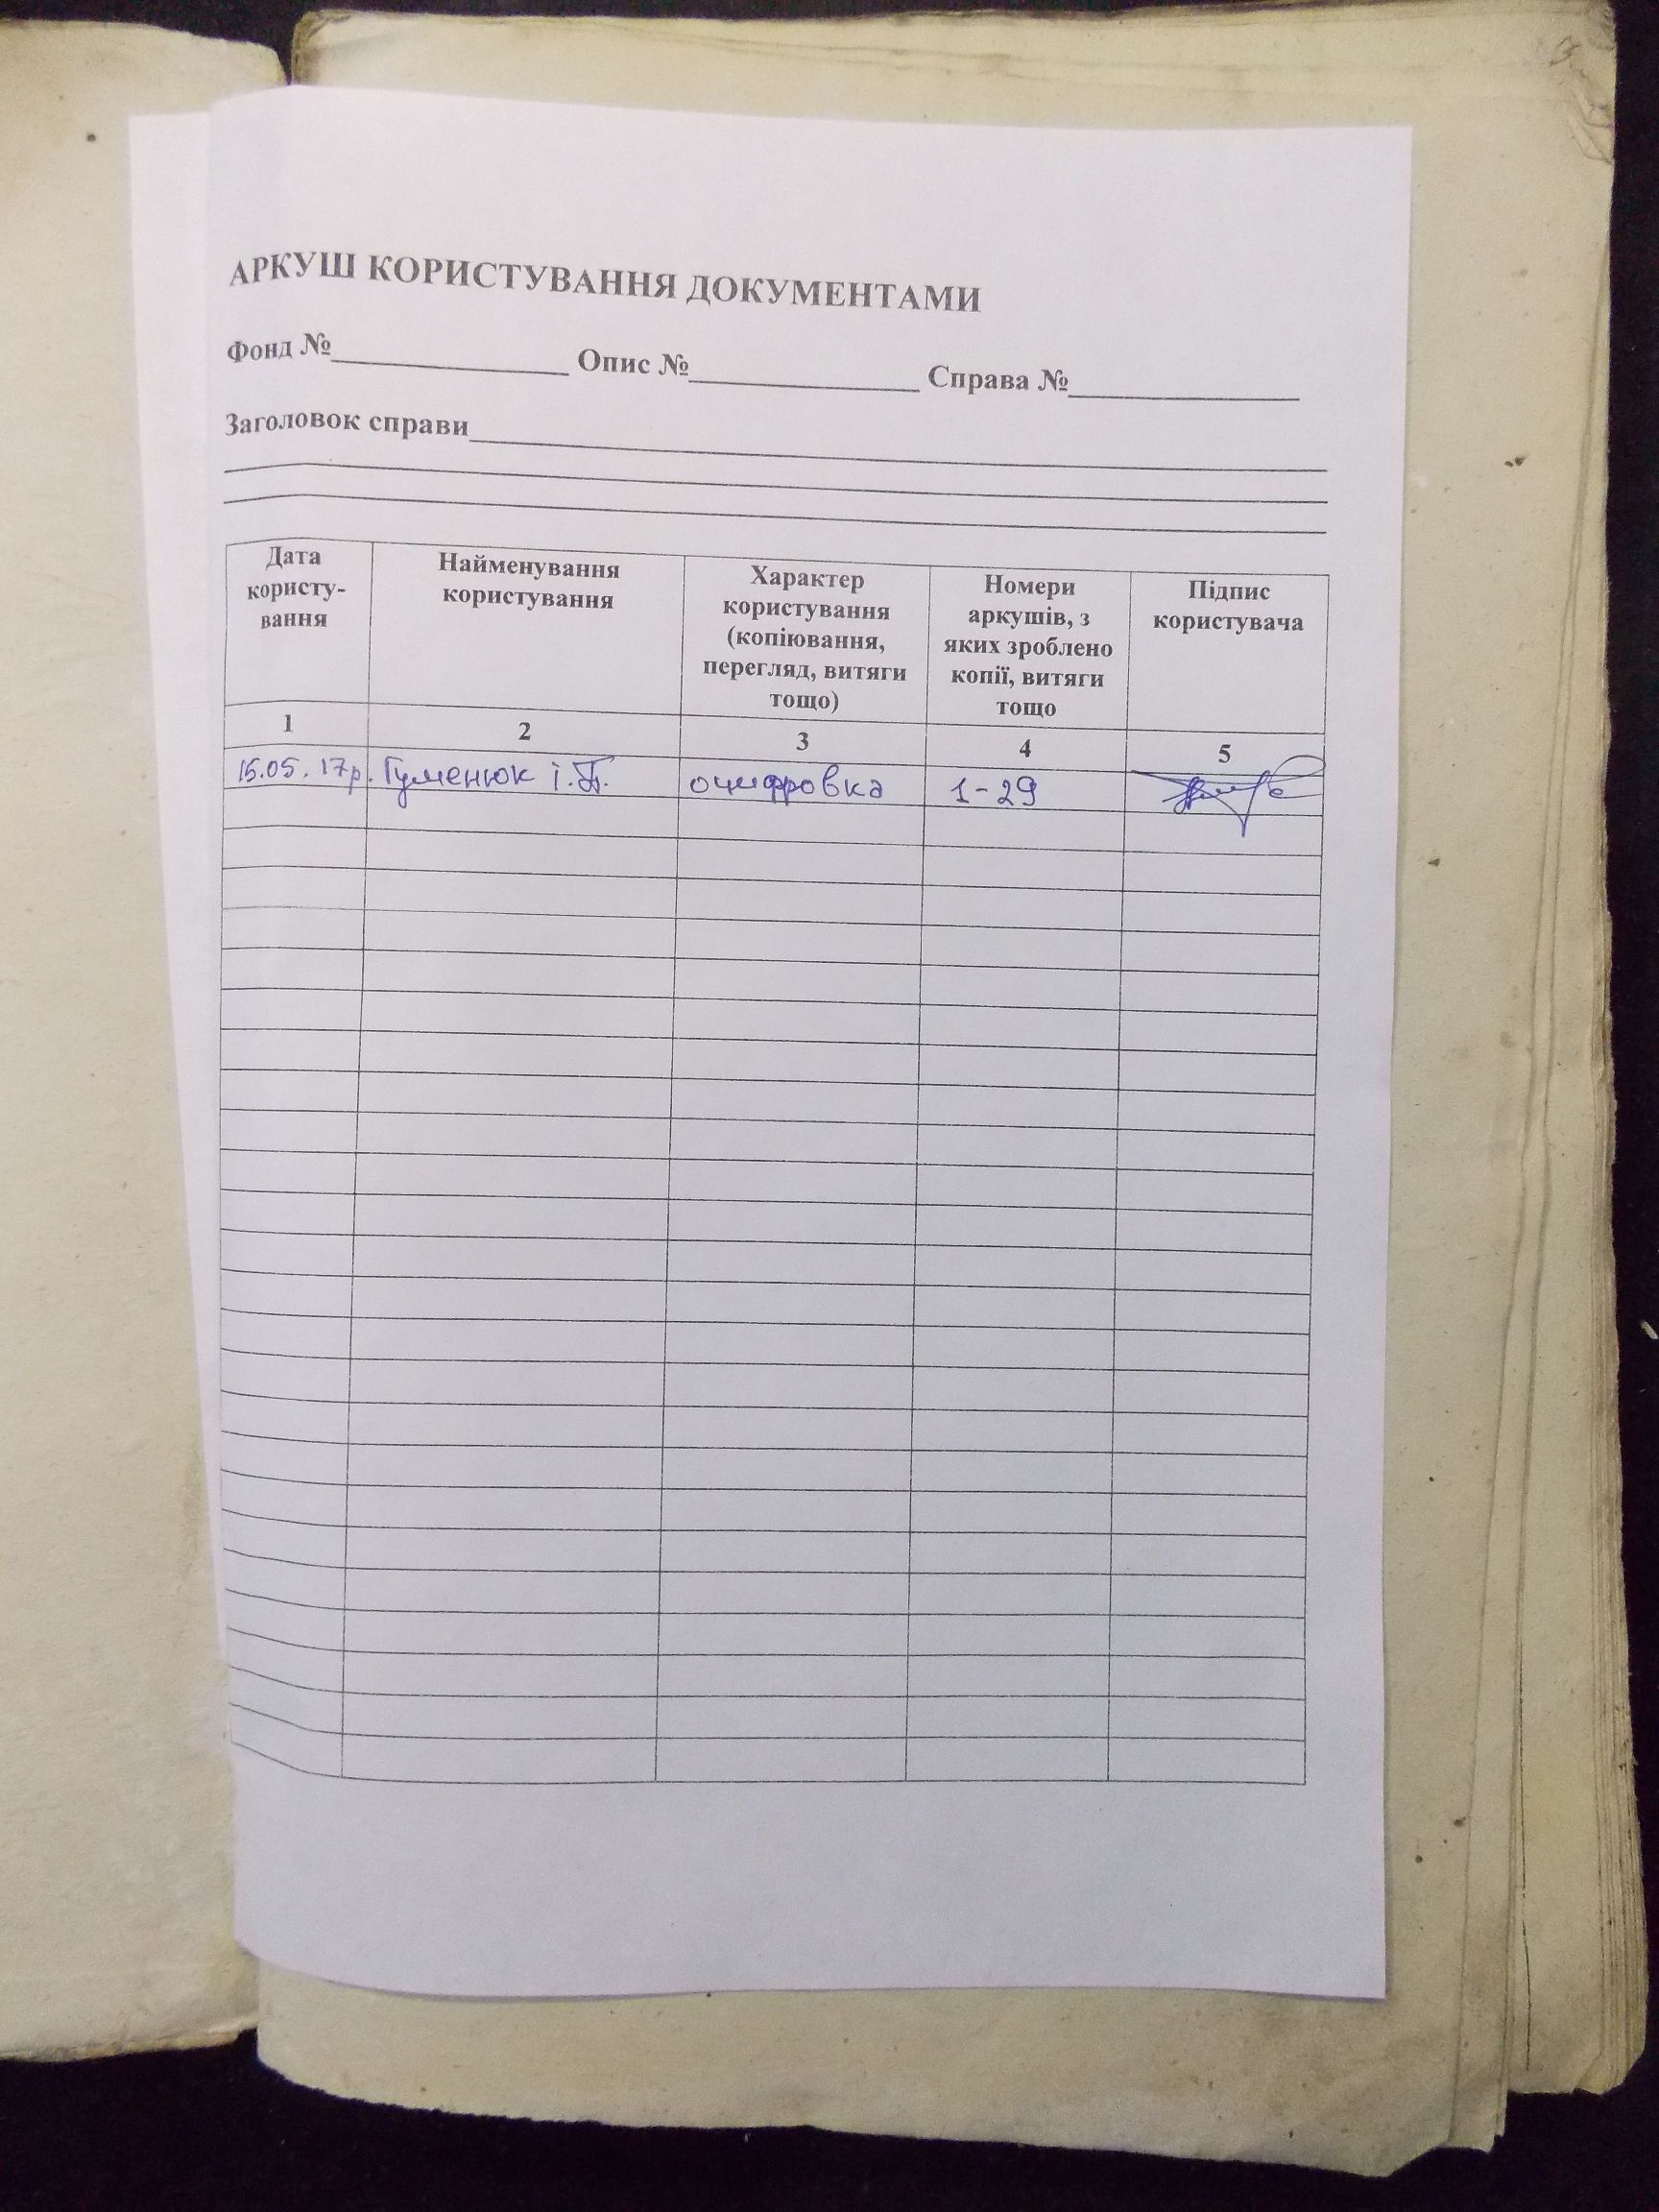 АРКУШ КОРИСТУВАННЯ ДОКУМЕНТАМИ
Фонд №______________ Опис №______________ Справа №______________
Заголовок справи
Дата користу-вання
Найменування користування
Характер користування (копіювання, перегляд, витяги тощо)
Номери аркушів, з яких зроблено копії, витяги тощо
Підпис користувача
1 2 3 4 5
15.05.17р. Гуменюк І.П. оцифровка 1-29